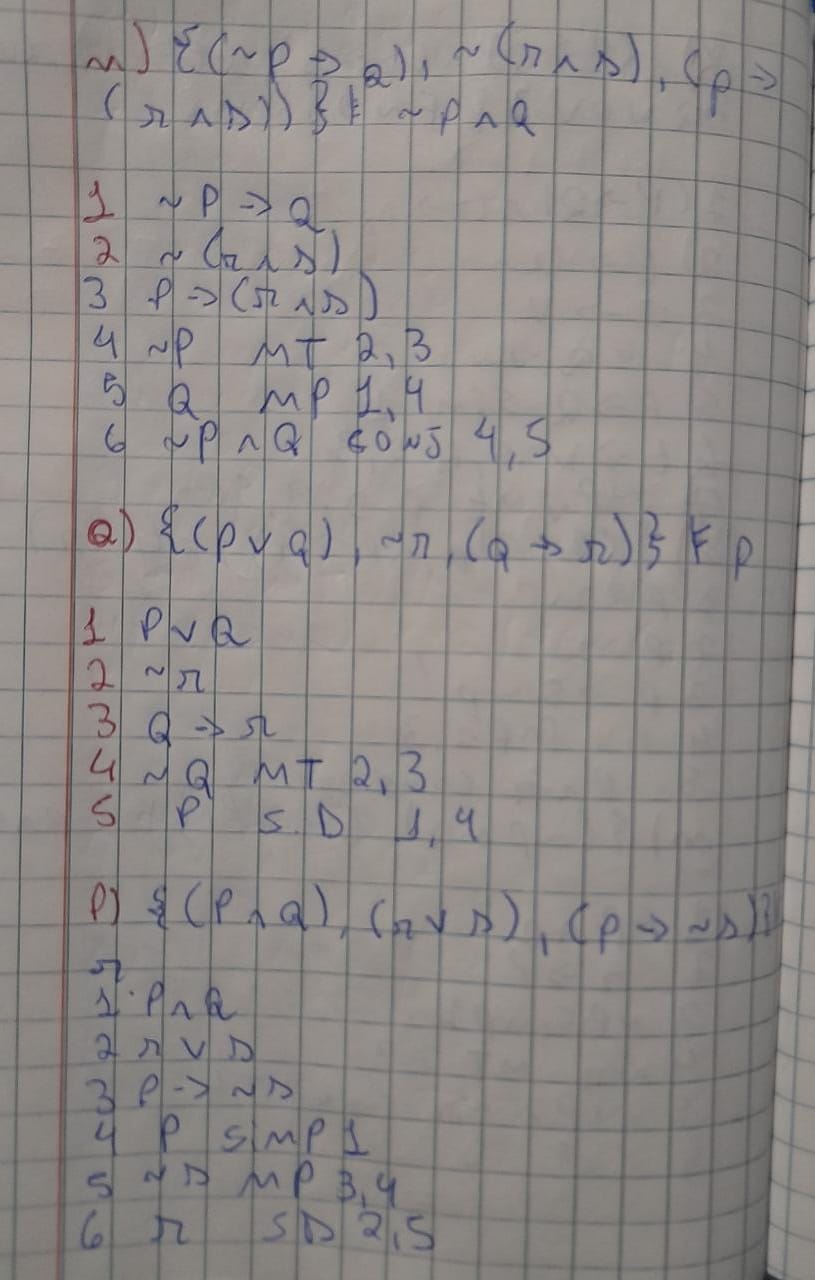 n) {(~P → Q), ~(r ∧ s), (p →
(r ∧ s))} ⊧ ~P ∧ Q
1 ~P → Q
2 ~(r ∧ s)
3 P → (r ∧ s)
4 ~P MT 2,3
5 Q MP 1,4
6 ~P ∧ Q CONJ 4,5
Q) {(P ∨ Q), ~r, (Q → r)} ⊧ P
1 P ∨ Q
2 ~r
3 Q → r
4 ~Q MT 2,3
5 P SD 1,4
P) {(P ∧ Q), (r ∨ s), (p → ~s)}
r
1 P ∧ Q
2 r ∨ s
3 P → ~s
4 P SIMP 1
5 ~s MP 3,4
6 r SD 2,5